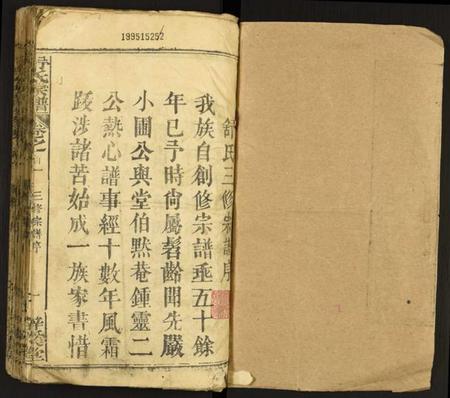 199515252
舒氏三修宗譜序
我族自創修宗譜垂五十餘
年已予時尙屬髫齡聞先嚴
小圃公與堂伯黙菴鍾靈二
公熱心譜事經十數年風霜
跋涉諸苦始成一族家書惜
舒氏宗譜
卷之一
三修宗譜序
一